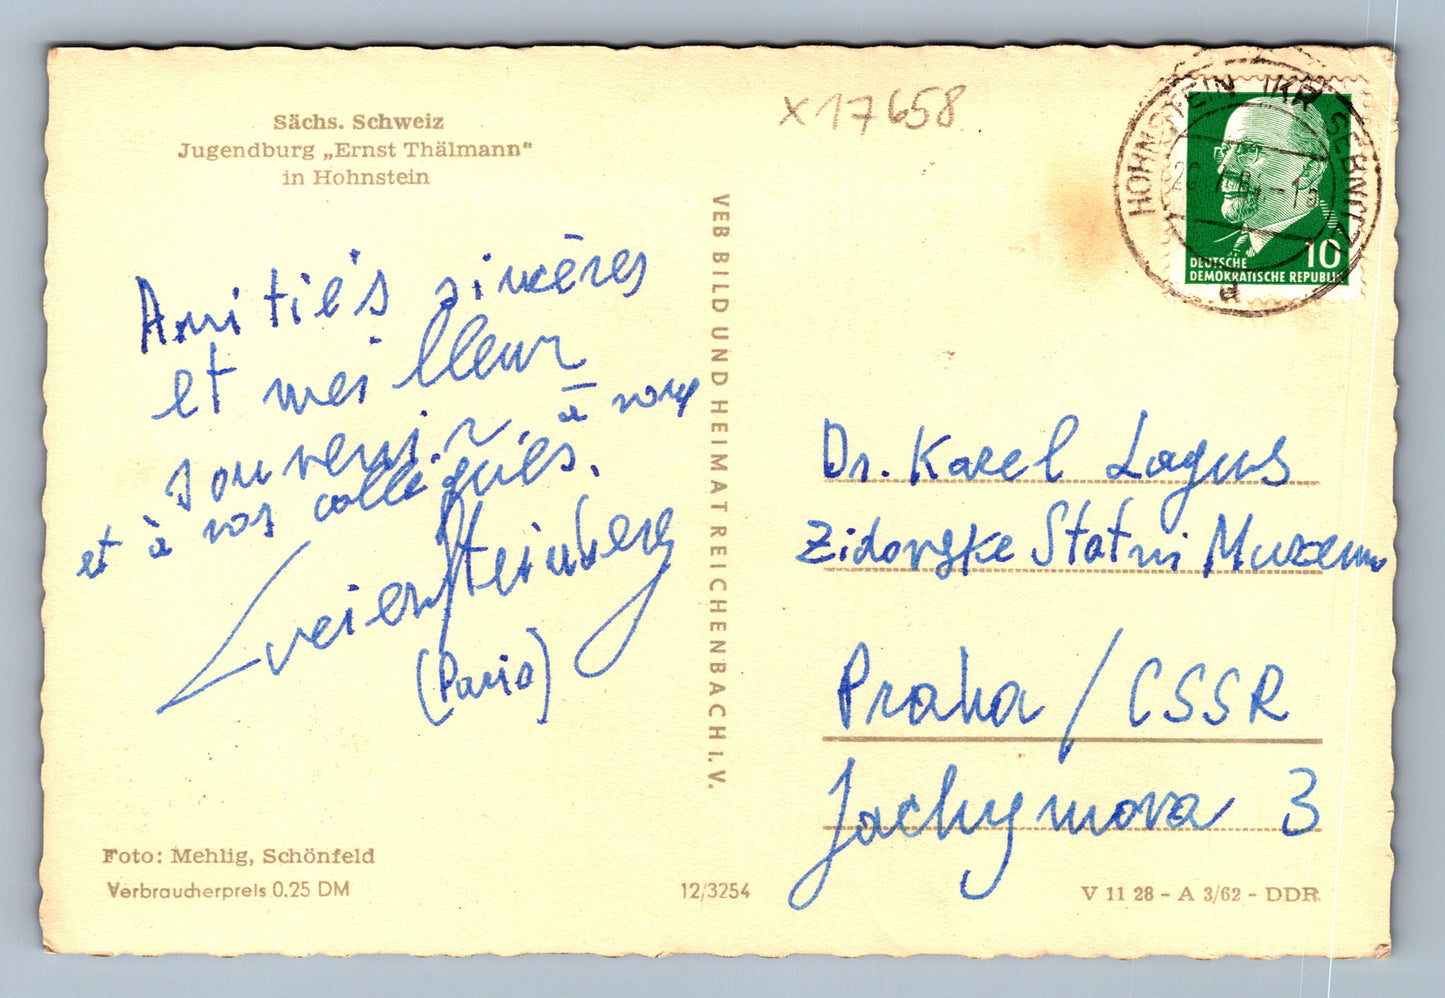 Sächs. Schweiz
Jugendburg „Ernst Thälmann"
in Hohnstein
x 17658
HOHNSTEIN (KR SEBNITZ)
a
10
DEUTSCHE
DEMOKRATISCHE REPUBLIK
Amitiés sincères
et meilleur
souvenir à vous
et à vos collègues.
Steinberg
(Paris)
VEB BILD UND HEIMAT REICHENBACH I. V.
Dr. Karel Lagus
Zidovske Statni Muzeum
Praha / CSSR
Jachymova 3
Foto: Mehlig, Schönfeld
Verbraucherpreis 0.25 DM
12/3254
V 11 28 - A 3/62 - DDR